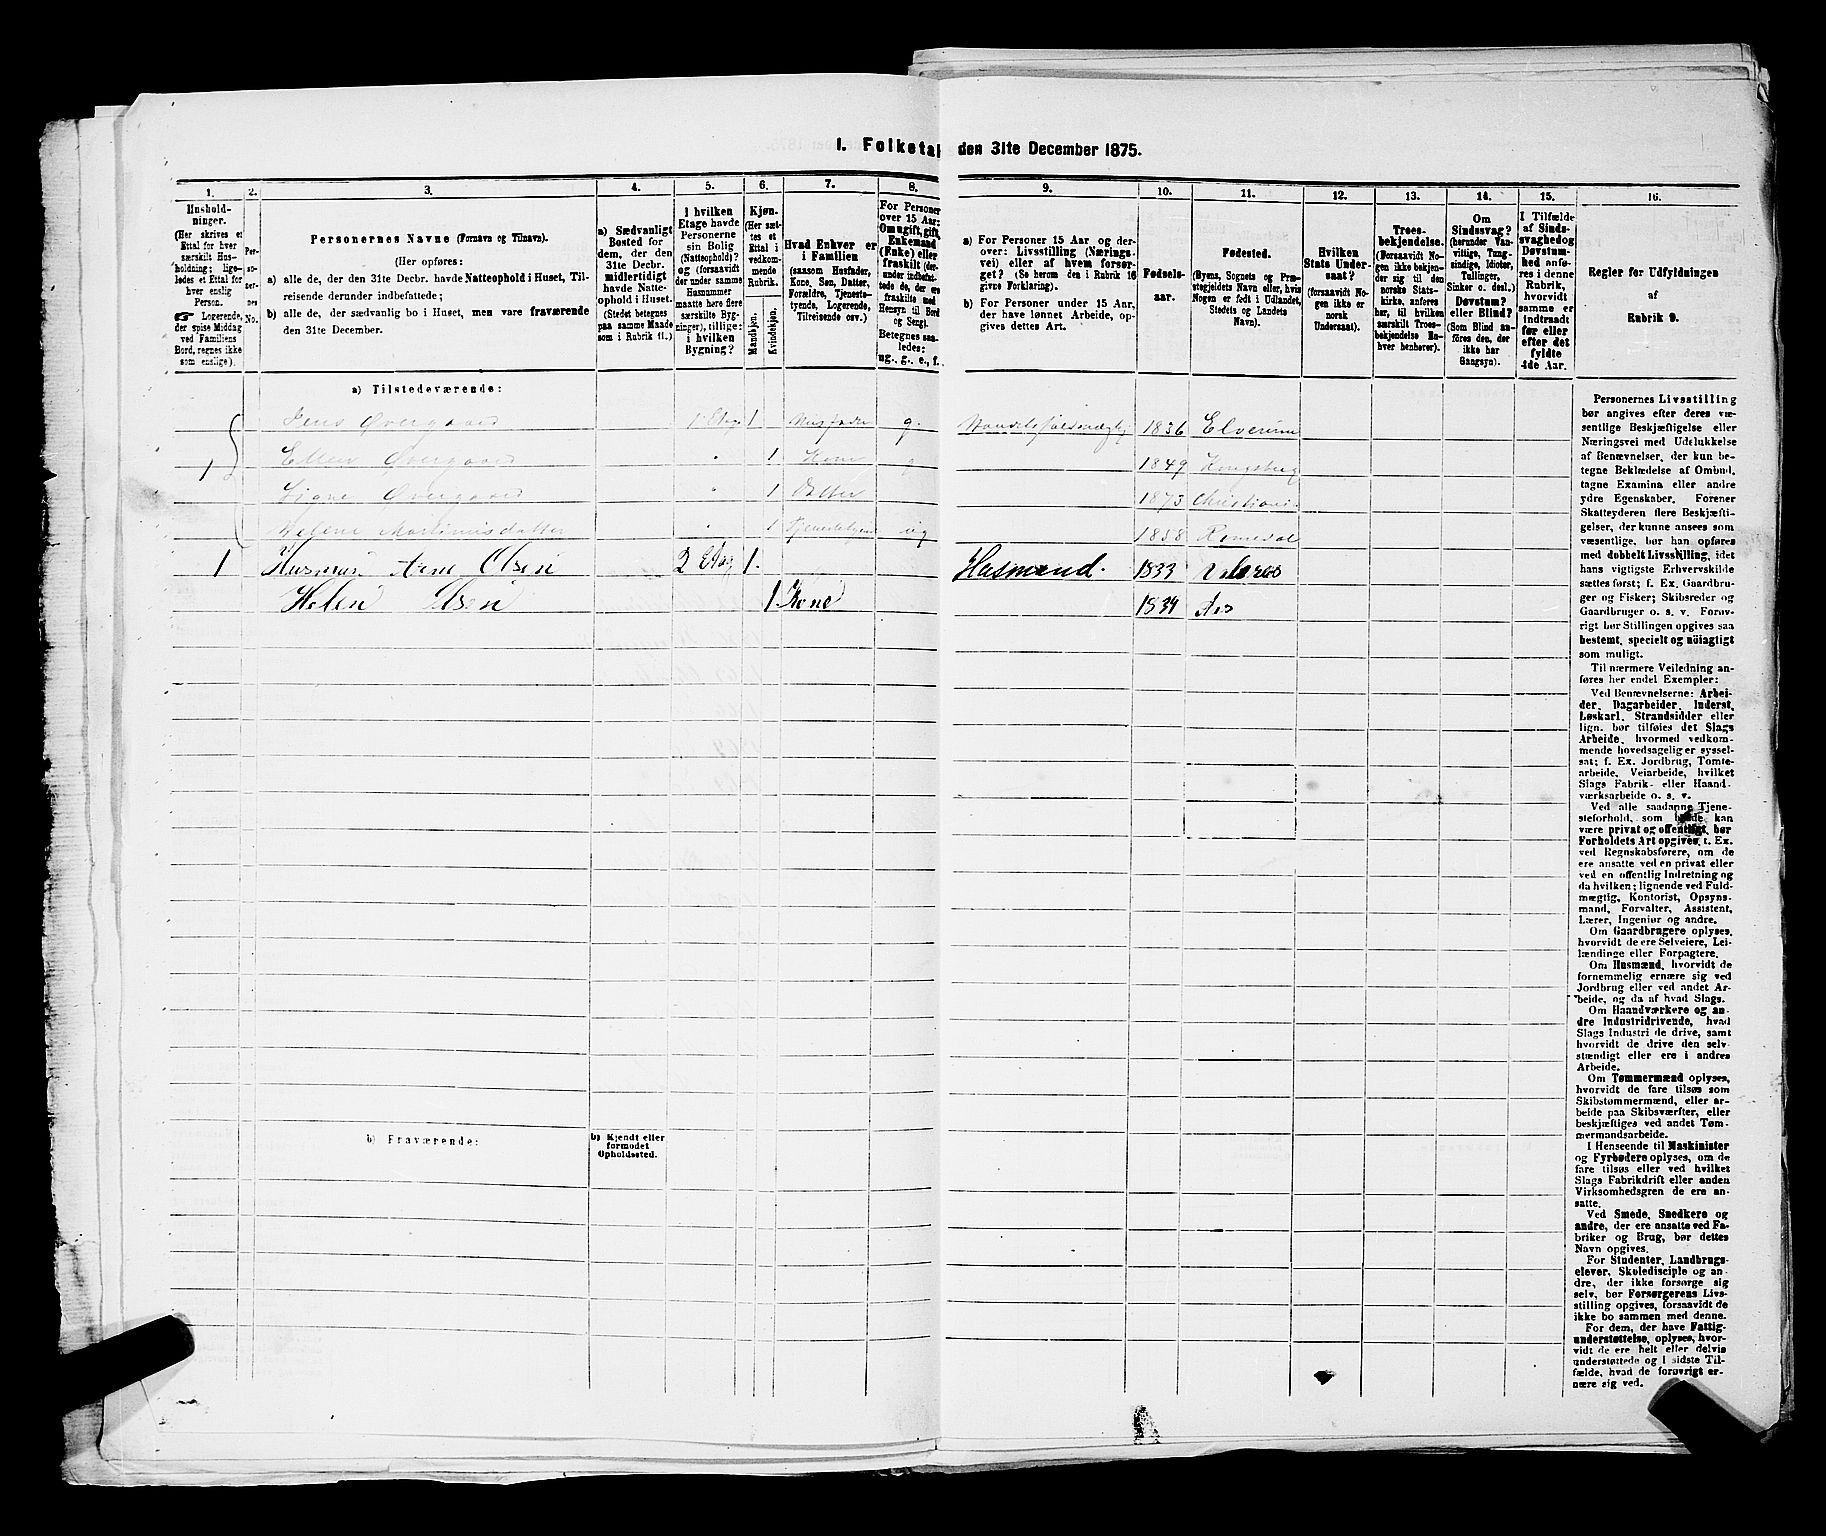 1. Folketal den 31te December 1875.
1.
Hushold-
ninger.
(Her skrives et
Ettal for hver
særskilt Hus-
holdning; lige-
ledes et Ettal for
hver enslig
Person.
☛ Logerende,
der spise Middag
ved Familiens
Bord, regnes ikke
som enslige).
2.
Per-
so-
ner-
nes
No.
3.
Personernes Navne (Fornavn og Tilnavn).
(Her opføres:
a) alle de, der den 31te Decbr. havde Natteophold i Huset, Til-
reisende derunder indbefattede;
b) alle de, der sædvanlig bo i Huset, men vare fraværende
den 31te December.
4.
a) Sædvanligt
Bosted for
dem, der den
31te Decbr.
midlertidigt
havde Natte-
ophold i Huset.
(Stedet betegnes
paa samme Maade
som i Rubrik 11.)
5.
I hvilken
Etage havde
Personerne
sin Bolig
(Natteophold)?
og (forsaavidt
der under samme
Husnummer
maatte høre flere
særskilte Byg-
ninger), tillige:
i hvilken
Bygning?
6.
Kjøn.
(Her sæt-
tes et
Ettal i
vedkom-
mende
Rubrik.
Mandkjøn.
Kvindekjøn.
7.
Hvad Enhver er
i Familien
(saasom Husfader,
Kone, Søn, Datter,
Forældre, Tjeneste-
tyende, Logerende,
Tilreisende osv.)
8.
For Personer
over 15 Aar:
Om ugift, gift,
Enkemand
(Enke) eller
fraskilt (der-
under indbefat-
tede de, der ere
fraskilte med
Hensyn til Bord
og Seng).
Betegnes saa-
ledes:
ug., g., e., f.
9.
a) For Personer 15 Aar og der-
over: Livsstilling (Nærings-
vei) eller af hvem forsør-
get? (Se herom den i Rubrik 16
givne Forklaring).
b) For Personer under 15 Aar,
der have lønnet Arbeide, op-
gives dettes Art.
10.
Fødsels-
aar.
11.
Fødested.
(Byens, Sognets og Præ-
stegjeldets Navn eller, hvis
Nogen er født i Udlandet,
Stedets og Landets
Navn).
12.
Hvilken
Stats Under-
saat?
(forsaavidt No-
gen ikke er
norsk
Undersaat).
13.
Troes-
bekjendelse.
(Forsaavidt No-
gen ikke bekjen-
der sig til den
norske Stats-
kirke, anføres
her, til hvilken
særskilt Troes-
bekjendelse En-
hver henhører).
14.
Om
Sindssvag?
(herunder Van-
vittige, Tung-
sindige, Idioter,
Tullinger,
Sinker o. desl.)
Døvstum?
eller Blind?
(Som Blind an-
føres den, der
ikke har
Gangsyn).
15.
I Tilfælde
af Sinds-
svaghed og
Døvstum-
hed anfø-
res i denne
Rubrik,
hvorvidt
samme er
indtraadt
før eller
efter det
fyldte
4de Aar.
16.
Regler for Udfyldningen
af
Rubrik 9.
a) Tilstedeværende:
Jens Øvergaard 1 Etag 1 Husfader g. 1836 Elverum
1 Ellen Øvergaard " 1 Kone g 1849 Kongsberg
Signe Øvergaard " 1 Datter 1873 Christiania
Helene Martinusdatter " 1 ug 1858 Romedal
1 Husman Arne Olsen 2 Etag 1. Husmand. 1833
Helen Olsen 1 Kone 1839
b) Fraværende:
b) Kjendt eller
formodet
Opholdssted.
Personernes Livsstilling
bør angives efter deres væ-
sentlige Beskjæftigelse eller
Næringsvei med Udelukkelse
af Benævnelser, der kun be-
tegne Beklædelse af Ombud,
tagne Examina eller andre
ydre Egenskaber. Forener
Skatteyderen flere Beskjæfti-
gelser, der kunne ansees som
væsentlige, bør han opføres
med dobbelt Livsstilling, idet
hans vigtigste Erhvervskilde
sættes først; f. Ex. Gaardbru-
ger og Fisker; Skibsreder og
Gaardbruger o. s. v. Forøv-
rigt bør Stillingen opgives saa
bestemt, specielt og nøiagtigt
som muligt.
Til nærmere Veiledning an-
føres her endel Exempler:
Ved Benævnelserne: Arbei-
der, Dagarbeider, Inderst,
Løskarl, Strandsidder eller
lign. bør tilføies det Slags
Arbeide, hvormed vedkom-
mende hovedsagelig er syssel-
sat; f. Ex. Jordbrug, Tomte-
arbeide, Veiarbeide, hvilket
Slags Fabrik- eller Haand-
værksarbeide o. s. v.
Ved alle saadanne Tjene-
steforhold, som både kan
være privat og offentligt, bør
Forholdets Art opgives, t. Ex.
ved Regnskabsførere, om de
ere ansatte ved en privat eller
ved en offentlig Indretning og
da hvilken; lignende ved Fuld-
mægtig, Kontorist, Opsyns-
mand, Forvalter, Assistent,
Lærer, Ingeniør og andre.
Om Gaardbrugere oplyses,
hvorvidt de ere Selveiere, Lei-
lændinge eller Forpagtere.
Om Husmænd, hvorvidt de
fornemmelig ernære sig ved
Jordbrug eller ved andet Ar-
beide, og da af hvad Slags.
Om Haandværkere og an-
dre Industridrivende, hvad
Slags Industri de drive, samt
hvorvidt de drive den selv-
stændigt eller ere i andres
Arbeide.
Om Tømmermænd oplyses,
hvorvidt de fare tilsøs som
Skibstømmermænd, eller ar-
beide paa Skibsværfter, eller
beskjæftiges ved andet Tøm-
mermandsarbeide.
I Henseende til Maskinister
og Fyrbødere oplyses, om de
fare tilsøs eller ved hvilket
Slags Fabrikdrift eller anden
Virksomhedsgren de ere an-
satte.
Ved Smede, Snedkere og
andre, der ere ansatte ved Fa-
briker og Brug, bør dettes
Navn opgives.
For Studenter, Landbrugs-
elever, Skoledisciple og an-
dre, der ikke forsørge sig
selv, bør Forsørgerens Livs-
stilling opgives, forsaavidt de
ikke bo sammen med denne.
For dem, der have Fattig-
understøttelse, oplyses, hvor-
vidt de ere helt eller delvis
understøttede og i sidste Til-
fælde, hvad de forøvrigt er-
nære sig ved.